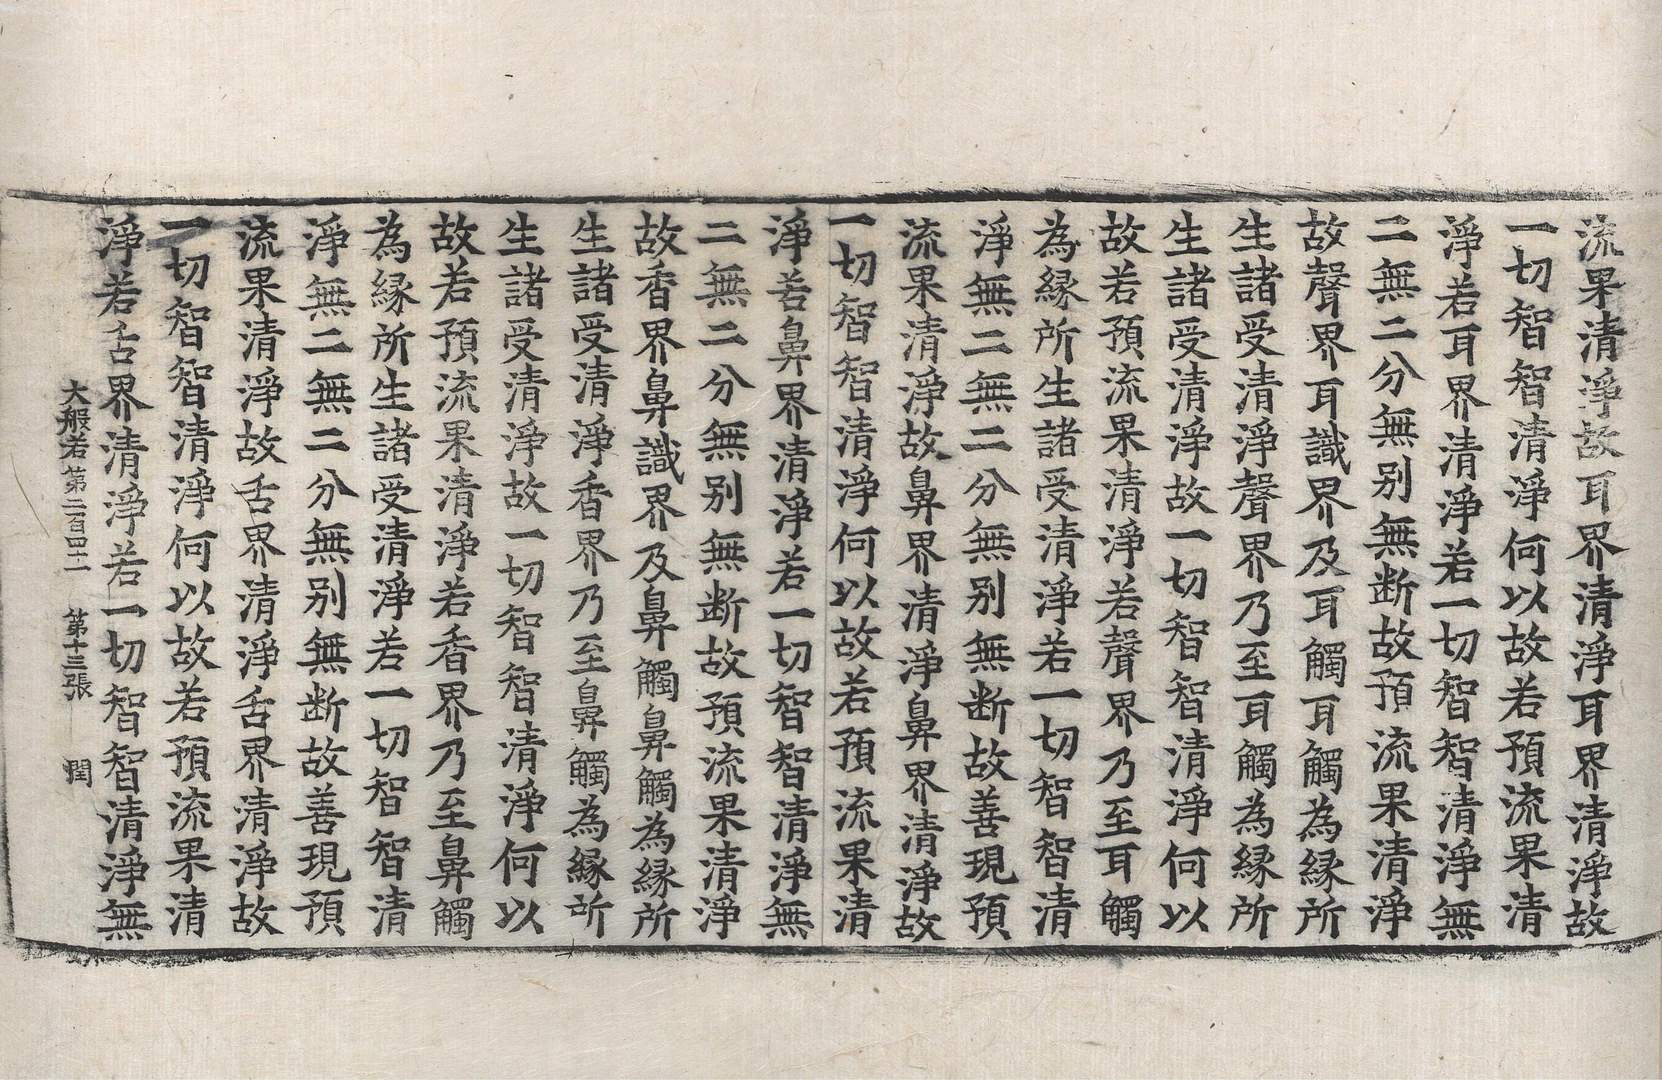 流果清淨故耳界清淨耳界清淨故
一切智智清淨何以故若預流果清
淨若耳界清淨若一切智智清淨無
二無二分無别無断故預流果清淨
故聲界耳識界及耳觸耳觸為縁所
生諸受清淨聲界乃至耳觸為縁所
生諸受清淨故一切智智清淨何以
故若預流果清淨若聲界乃至耳觸
為縁所生諸受清淨若一切智智清
淨無二無二分無别無断故善現預
流果清淨故鼻界清淨鼻界清淨故
一切智智清淨何以故若預流果清
淨若鼻界清淨若一切智智清淨無
二無二分無别無断故預流果清淨
故香界鼻識界及鼻觸鼻觸為縁所
生諸受清淨香界乃至鼻觸為縁所
生諸受清淨故一切智智清淨何以
故若預流果清淨若香界乃至鼻觸
為縁所生諸受清淨若一切智智清
淨無二無二分無别無断故善現預
流果清淨故舌界清淨舌界清淨故
一切智智清淨何以故若預流果清
淨若舌界清淨若一切智智清淨無
大般若第二百四二 第十三張 閏